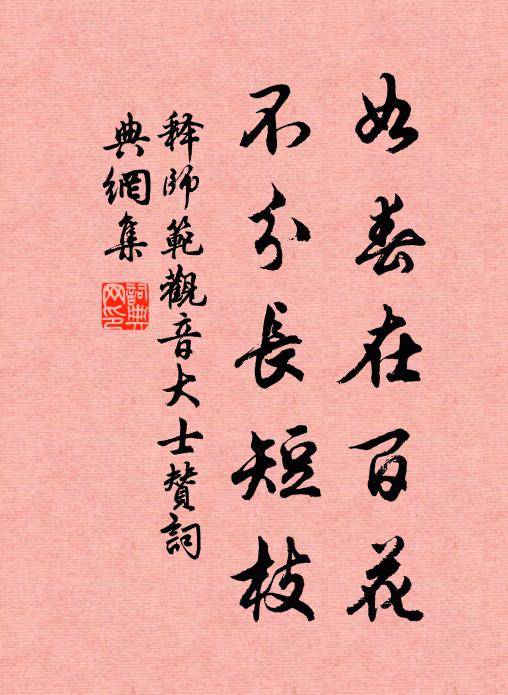 如春在百花
不分長短枝
释師範觀音大士贊詞
典網集
詞典網印